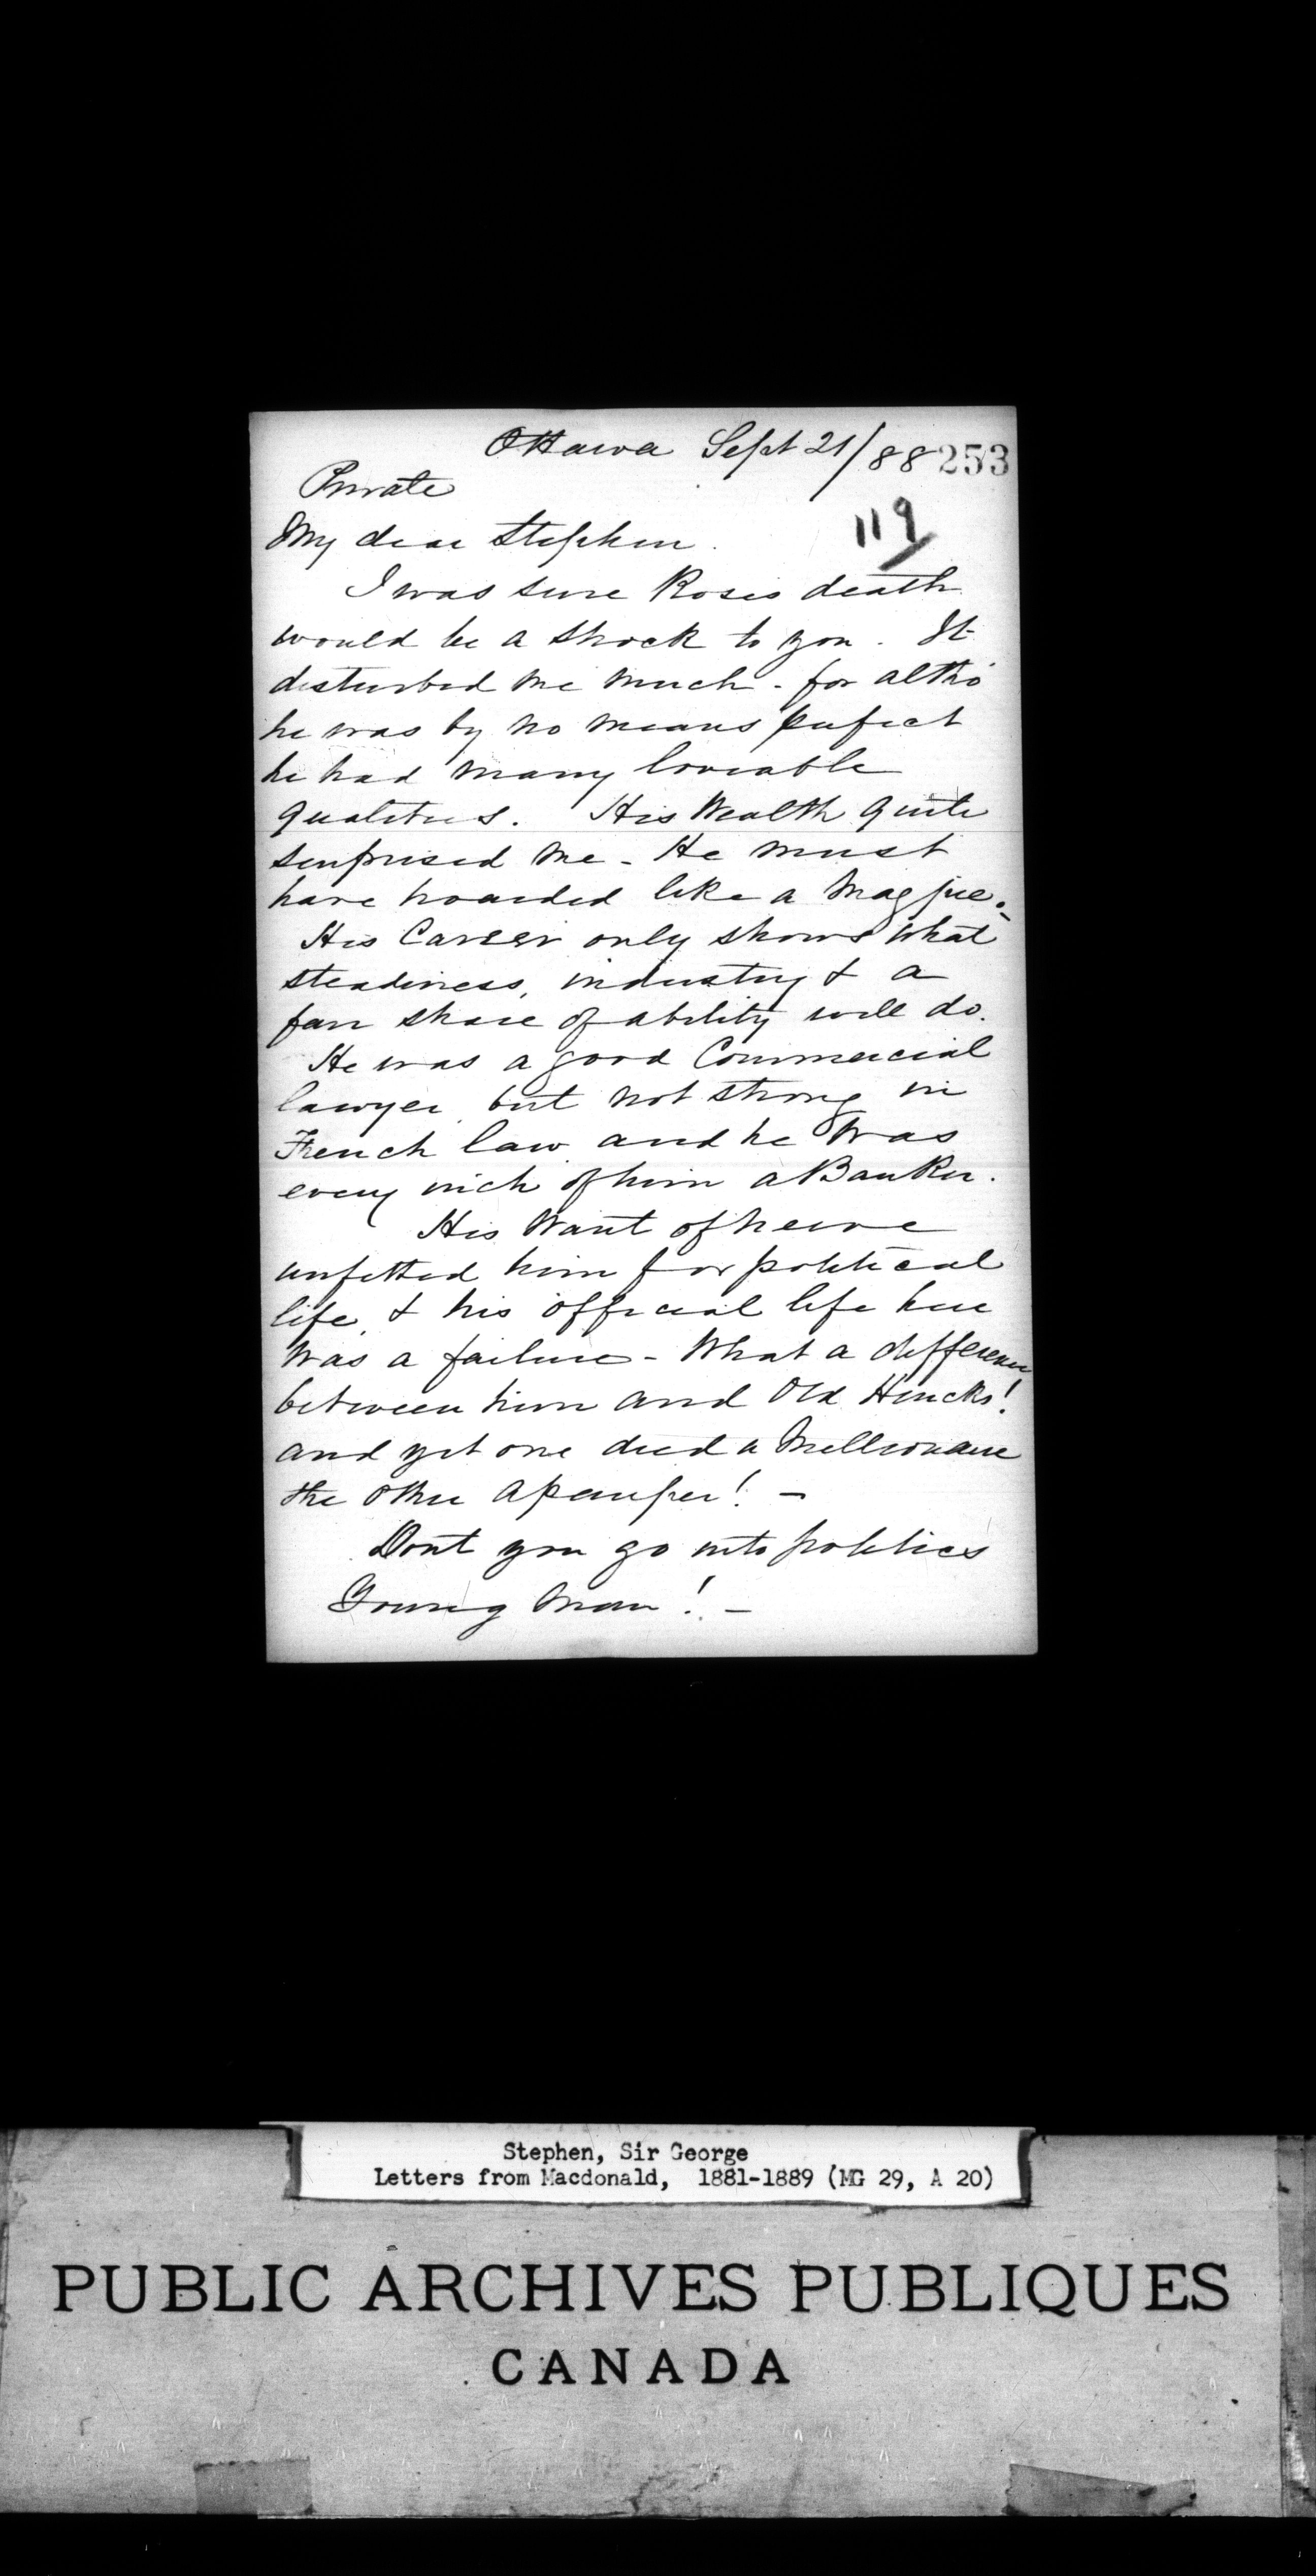 Ottawa Sept 21/88 253
Private
119
My dear Stephen.
I was sure Roses death
would be a shock to you. It
disturbed me much - for altho'
he was by no means perfect
he had many loveable
qualities. His Wealth quite
surprised me - He must
have hoarded like a Magpie. -
His Career only shows what
steadiness, industry & a
fair share of ability will do.
He was a good Commercial
lawyer, but not strong in
French law, and he was
every inch of him a Banker.
His Want of nerve
unfitted him for political
life, & his official life here
was a failure - What a difference
between him and Old Hincks!
and yet one died a Millionaire
the other a pauper! -
Dont you go into politics
Young Man! -
Stephen, Sir George
Letters from Macdonald, 1881-1889 (MG 29, A 20)
PUBLIC ARCHIVES PUBLIQUES
CANADA